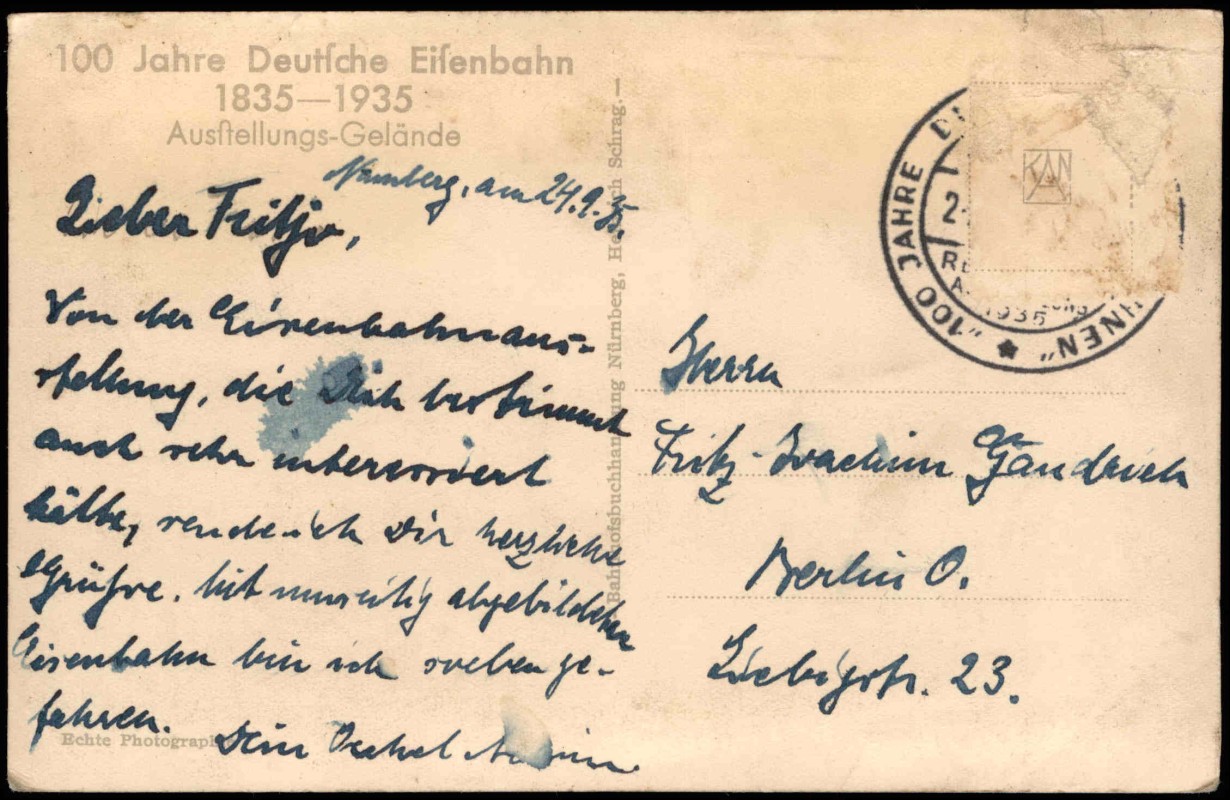 100 Jahre Deutſche Eiſenbahn
1835—1935
Ausſtellungs-Gelände
Nürnberg, am 24.9.35.
Lieber Fritzjo,
Von der Eisenbahnaus-
stellung, die Dich bestimmt
auch sehr interessiert
hätte, sende ich Dir herzliche
Grüsse. Mit umseitig abgebildeten
Eisenbahn bin ich soeben ge-
fahren.
Dein Onkel
Echte Photograph
Bahnhofsbuchhandlung Nürnberg, Heinrich Schrag.—
"100 JAHRE
1935
KAN
Herrn
Fritz-Joachim Gandrich
Berlin O.
Liebigstr. 23.